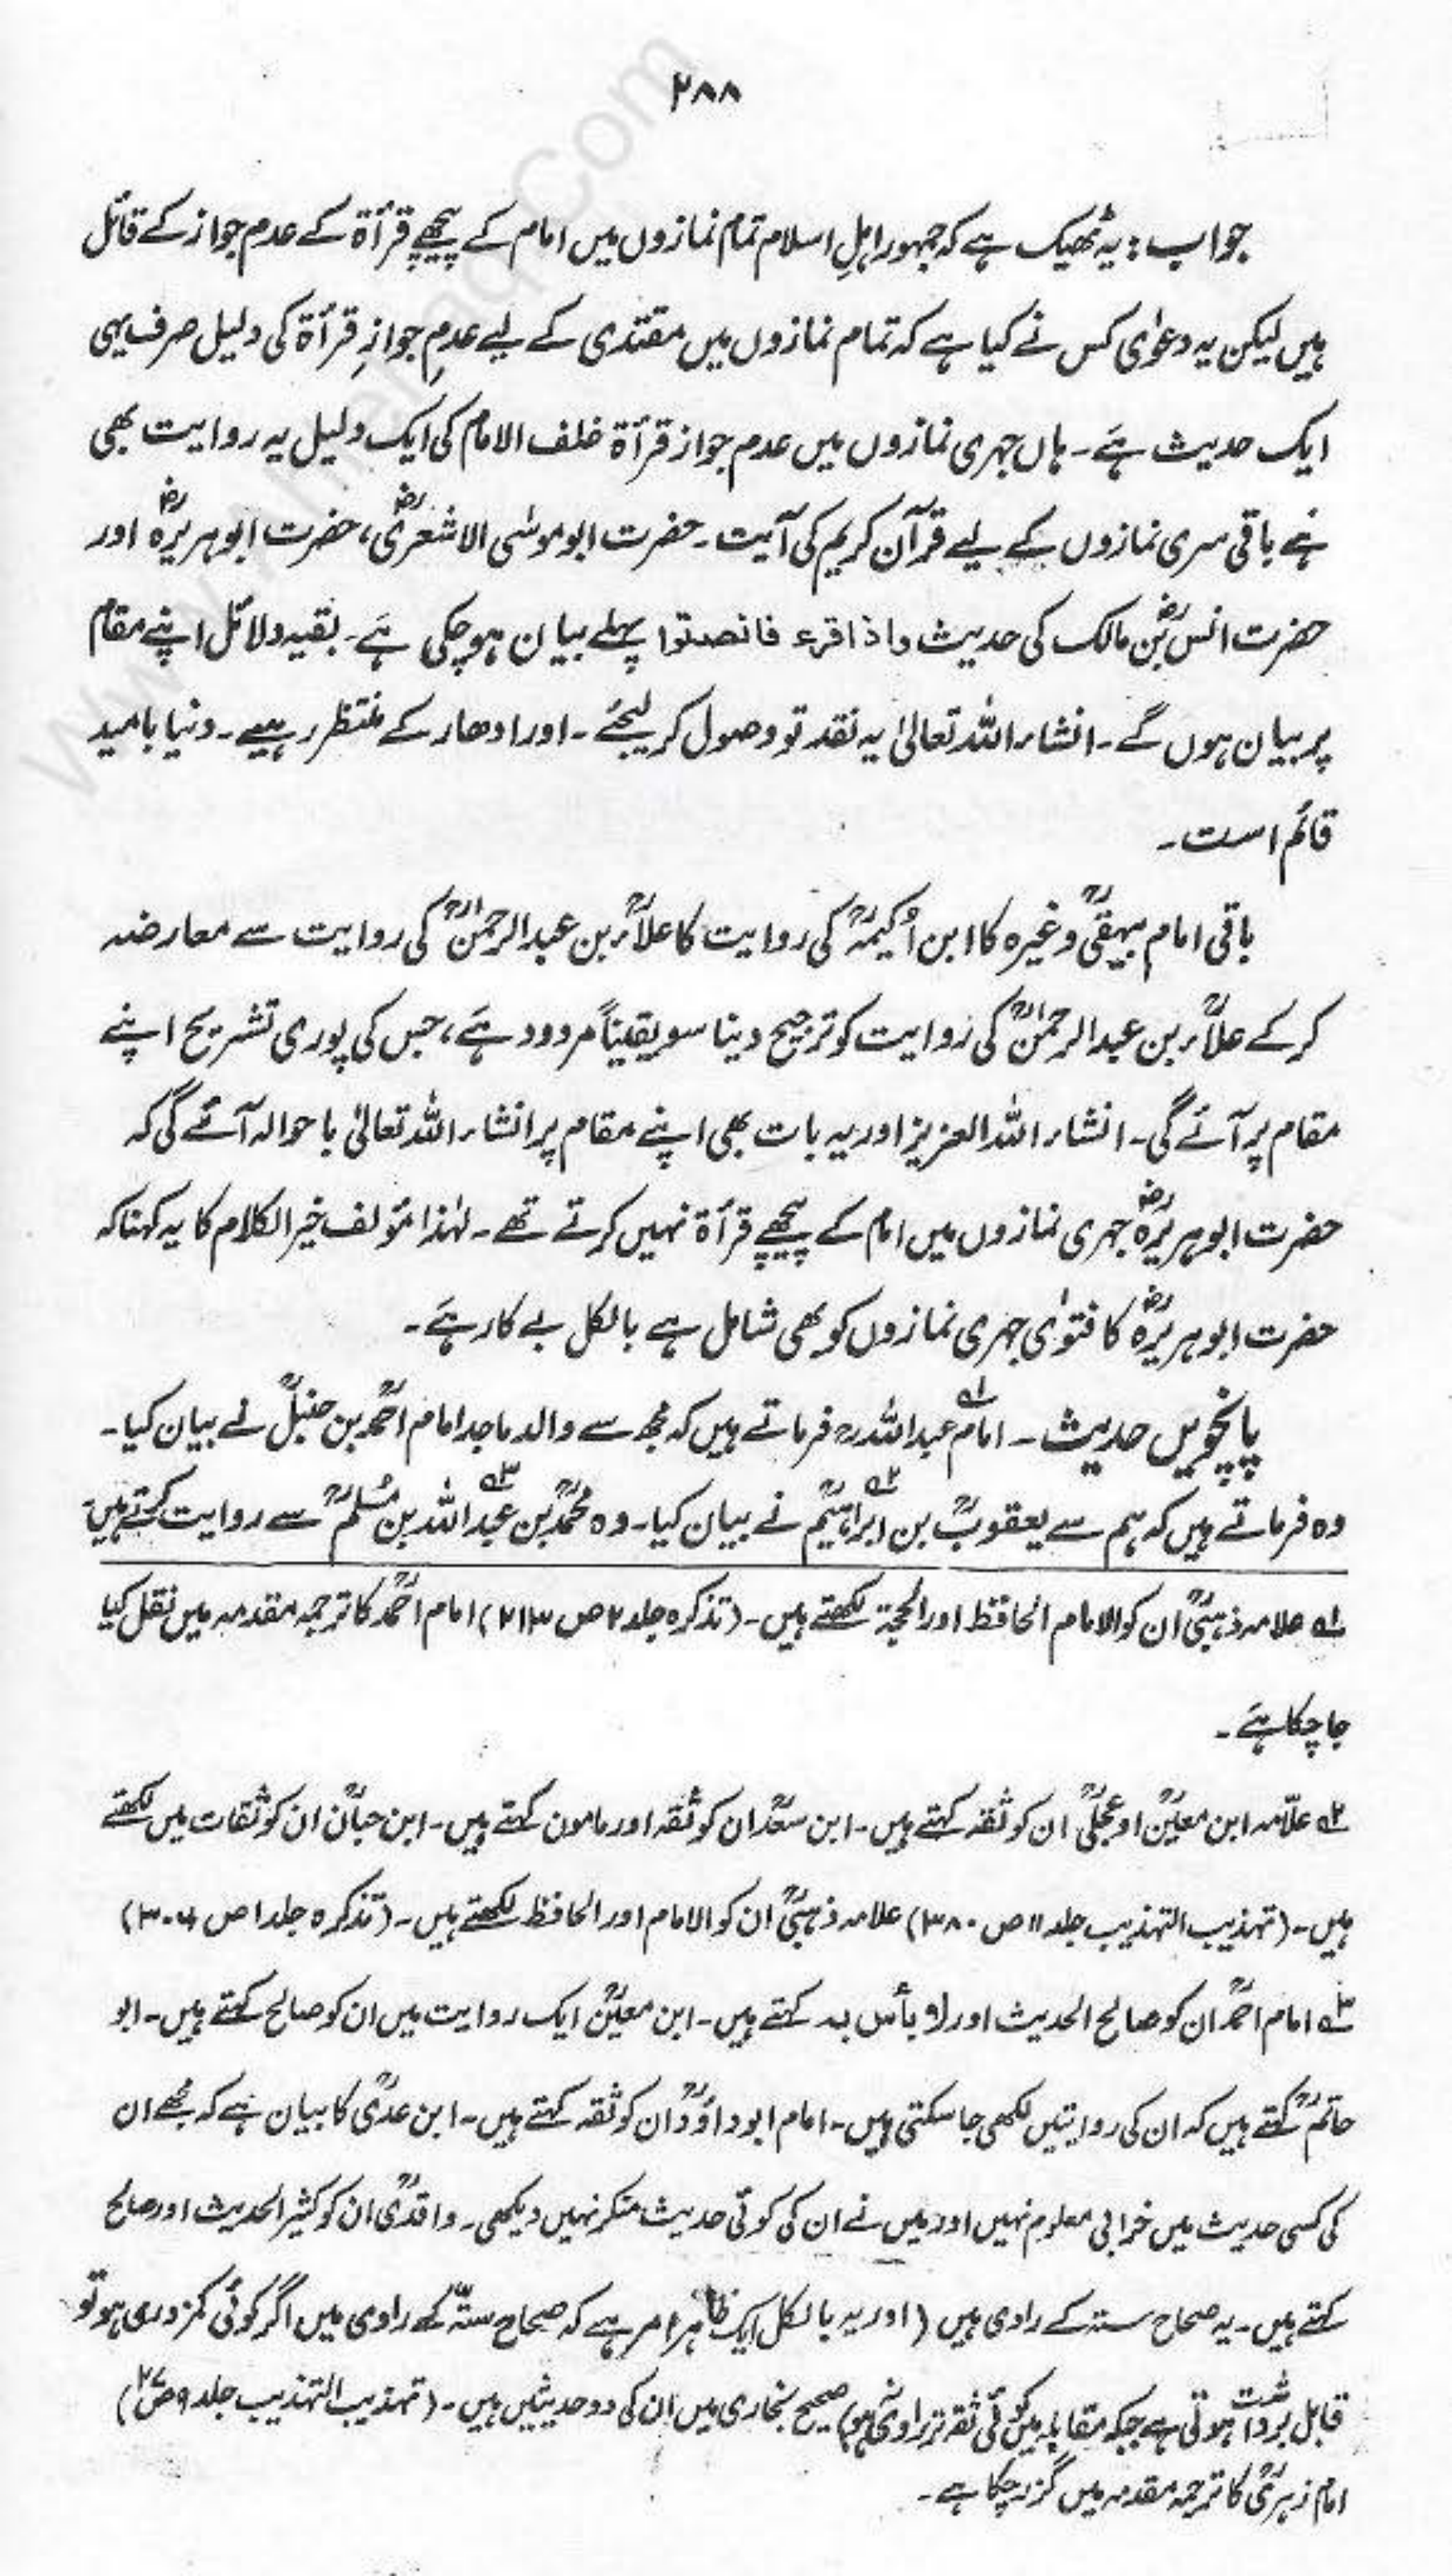 ۲۸۸
جواب: یہ ٹھیک ہے کہ جمہور اہلِ اسلام تمام نمازوں میں امام کے پیچھے قرأة کے عدم جواز کے قائل
ہیں لیکن یہ دعوٰی کس نے کیا ہے کہ تمام نمازوں میں مقتدی کے لیے عدمِ جوازِ قرأة کی دلیل صرف یہی
ایک حدیث ہے۔ ہاں جہری نمازوں میں عدم جواز قرأة خلف الامام کی ایک دلیل یہ روایت بھی
ہے باقی سری نمازوں کے لیے قرآن کریم کی آیت۔ حضرت ابوموسٰی الاشعریؓ، حضرت ابوہریرہؓ اور
حضرت انسؓ بن مالک کی حدیث واذا قرء فانصتوا پہلے بیان ہوچکی ہے۔ بقیہ دلائل اپنے مقام
پر بیان ہوں گے۔ انشاء اللہ تعالیٰ یہ نقد تو وصول کر لیجئے۔ اور ادھار کے منتظر رہیے۔ دنیا بامید
قائم است۔
باقی امام بیہقیؒ وغیرہ کا ابن اُکیمہؒ کی روایت کا علاءؒ بن عبدالرحمٰنؒ کی روایت سے معارضہ
کر کے علاءؒ بن عبدالرحمٰنؒ کی روایت کو ترجیح دینا سو یقیناً مردود ہے، جس کی پوری تشریح اپنے
مقام پر آئے گی۔ انشاء اللہ العزیز اور یہ بات بھی اپنے مقام پر انشاء اللہ تعالیٰ باحوالہ آئے گی کہ
حضرت ابوہریرہؓ جہری نمازوں میں امام کے پیچھے قرأة نہیں کرتے تھے۔ لہٰذا مؤلف خیر الکلام کا یہ کہنا کہ
حضرت ابوہریرہؓ کا فتوٰی جہری نمازوں کو بھی شامل ہے بالکل بے کار ہے۔
پانچویں حدیث۔ امام عبداللہؒ۱ فرماتے ہیں کہ مجھ سے والد ماجد امام احمدؒ بن حنبلؒ نے بیان کیا۔
وہ فرماتے ہیں کہ ہم سے یعقوبؒ بن ابراہیمؒ۲ نے بیان کیا۔ وہ محمدؒ بن عبداللہ۳ بن مُسلمؒ سے روایت کرتے ہیں
۱ علامہ ذہبیؒ ان کو الامام الحافظ اور الحجۃ لکھتے ہیں۔ (تذکرہ جلد ۲ ص ۲۱۳) امام احمدؒ کا ترجمہ مقدمہ میں نقل کیا
جا چکا ہے۔
۲ علّامہ ابن معینؒ او عجلیؒ ان کو ثقہ کہتے ہیں۔ ابن سعدؒ ان کو ثقہ اور مامون کہتے ہیں۔ ابن حبانؒ ان کو ثقات میں لکھتے
ہیں۔ (تہذیب التہذیب جلد ۱۱ ص ۳۸۰) علامہ ذہبیؒ ان کو الامام اور الحافظ لکھتے ہیں۔ (تذکرہ جلد ۱ ص ۳۰۶)
۳ امام احمدؒ ان کو صالح الحدیث اور لا بأس بہ کہتے ہیں۔ ابن معینؒ ایک روایت میں ان کو صالح کہتے ہیں۔ ابو
حاتمؒ کہتے ہیں کہ ان کی روایتیں لکھی جا سکتی ہیں۔ امام ابوداؤدؒ ان کو ثقہ کہتے ہیں۔ ابن عدیؒ کا بیان ہے کہ مجھے ان
کی کسی حدیث میں خرابی معلوم نہیں اور میں نے ان کی کوئی حدیث منکر نہیں دیکھی۔ واقدیؒ ان کو کثیر الحدیث اور صالح
کہتے ہیں۔ یہ صحاح ستہ کے راوی ہیں (اور یہ بالکل ایک ظاہر امر ہے کہ صحاح ستّہ کے راوی میں اگر کوئی کمزوری ہو تو
قابل برداشت ہوتی ہے جبکہ مقابلہ میں کوئی ثقہ تر راوی نہ ہو) صحیح بخاری میں ان کی دو حدیثیں ہیں۔ (تہذیب التہذیب جلد ۹ ص)
امام زہریؒ کا ترجمہ مقدمہ میں گزر چکا ہے۔